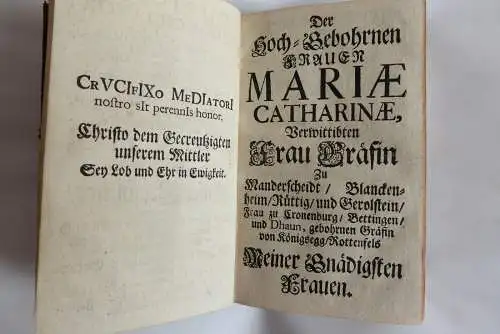 CrVCIfIXo MeDIatorI
noſtro sIt perennIs honor.
Chriſto dem Gecreutzigten
unſerem Mittler
Sey Lob und Ehr in Ewigkeit.
Der
Hoch-Gebohrnen
FRAUEN
MARIÆ
CATHARINÆ,
Verwittibten
Frau Gräfin
Zu
Manderſcheidt/ Blancken-
heim/Rüttig/ und Gerolſtein/
Frau zu Cronenburg/ Bettingen/
und Dhaun, gebohrnen Gräfin
von Königsegg/Rottenfels
Meiner Gnädigſten
Frauen.